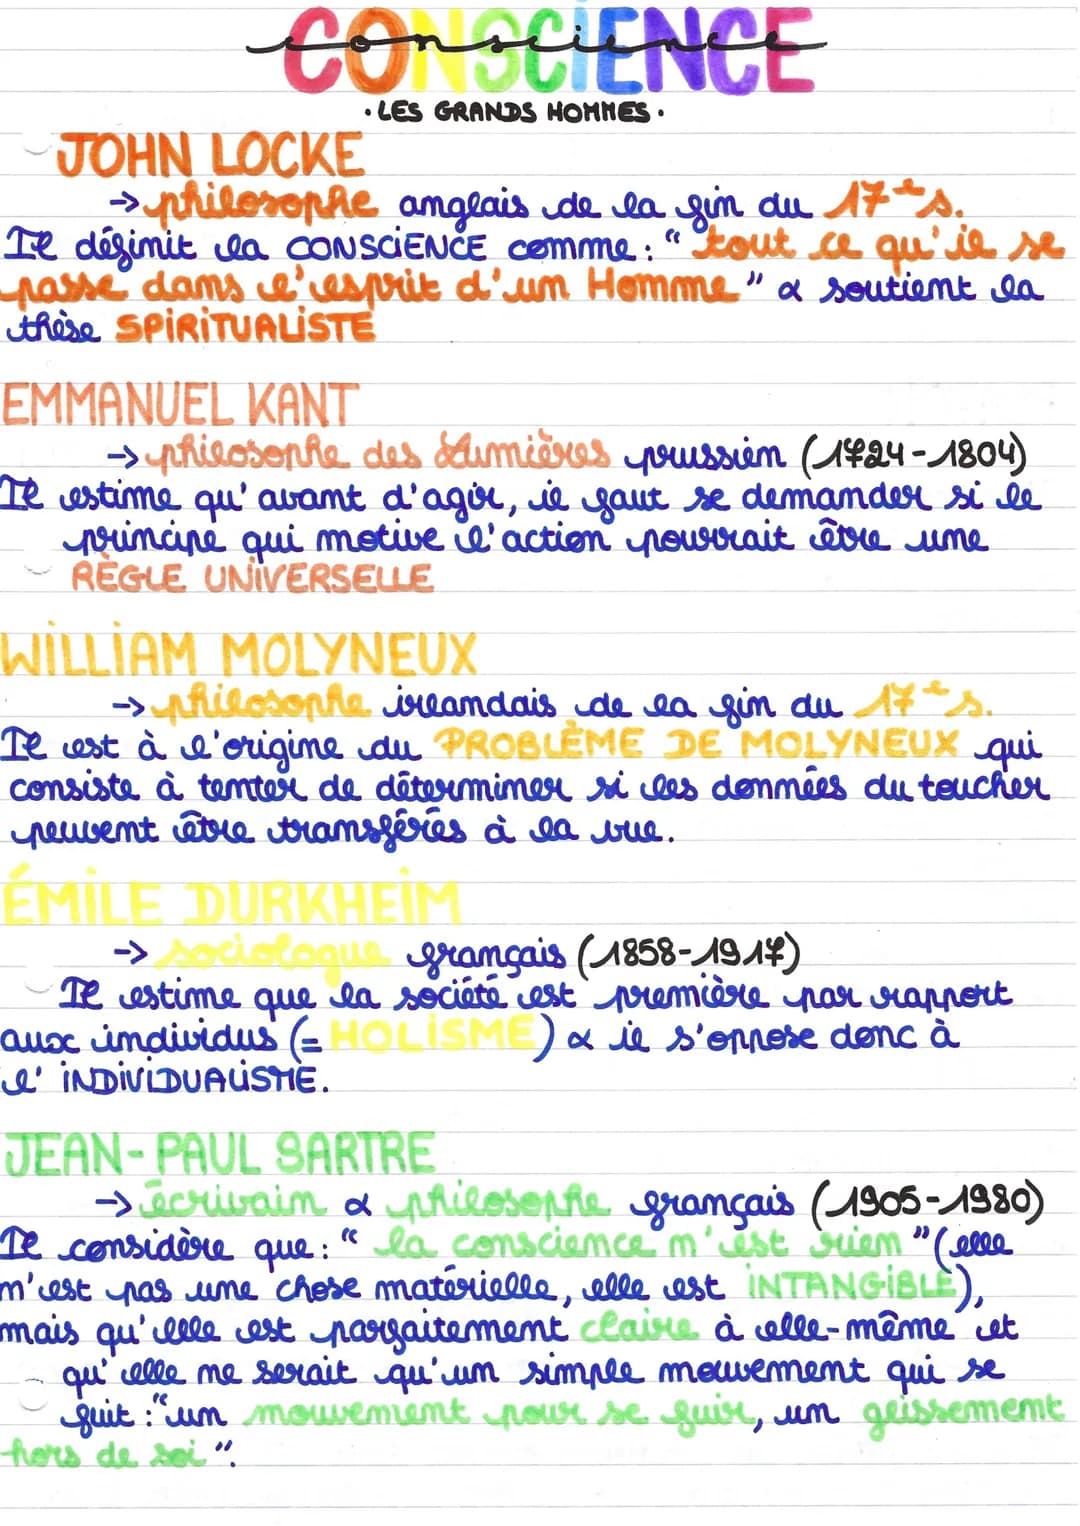 CONSCIENCE
conscience
• LES GRANDS HOMMES •
JOHN LOCKE
→ philosophe anglais de la fin du 17e s.
Il définit la CONSCIENCE comme : " tout ce qu'il se
passe dans l'esprit d'un Homme " & soutient la
thèse SPIRITUALISTE
EMMANUEL KANT
→ philosophe des Lumières prussien (1724-1804)
Il estime qu'avant d'agir, il faut se demander si le
principe qui motive l'action pourrait être une
RÈGLE UNIVERSELLE
WILLIAM MOLYNEUX
→ philosophe irlandais de la fin du 17e s.
Il est à l'origine du PROBLÈME DE MOLYNEUX qui
consiste à tenter de déterminer si les données du toucher
peuvent être transférés à la vue.
ÉMILE DURKHEIM
→ sociologue français (1858-1917)
Il estime que la société est première par rapport
aux individus (= HOLISME) & il s'oppose donc à
l'INDIVIDUALISME.
JEAN-PAUL SARTRE
→ écrivain & philosophe français (1905-1980)
Il considère que : " la conscience n'est rien " (elle
n'est pas une chose matérielle, elle est INTANGIBLE),
mais qu'elle est parfaitement claire à elle-même et
qu'elle ne serait qu'un simple mouvement qui se
fuit : "un mouvement pour se fuir, un glissement
hors de soi ".